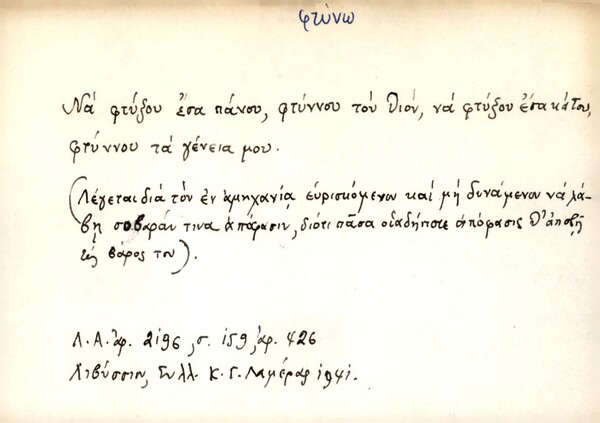 φτύνω
Νά φτύξου ἔσα πάνου, φτύννου τόν Θιόν, νά φτύξου ἔσα κάτου,
φτύννου τά γένεια μου.
(Λέγεται διά τόν ἐν ἀμηχανίᾳ εὑρισκόμενον καί μή δυνάμενον νά λά-
βῃ σοβαράν τινα ἀπόφασιν, διότι πᾶσα οἱαδήποτε ἀπόφασις θ' ἀποβῇ
εἰς βάρος του).
Λ. Α. ἀρ. 2196, σ. 159, ἀρ. 426
Λιβύσσιον, Συλλ. Κ. Γ. Λαμέρας 1941.